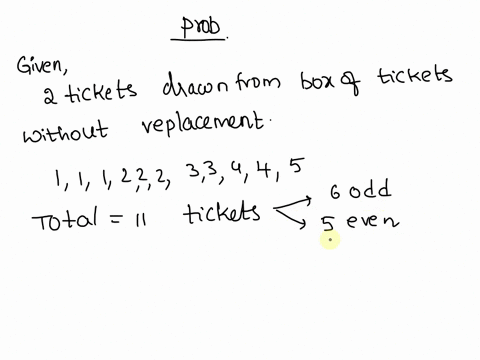 prob.
Given,
2 tickets drawn from box of tickets
without replacement.
1, 1, 1, 2, 2, 2, 3, 3, 4, 4, 5
Total = 11 tickets
6 odd
5 even